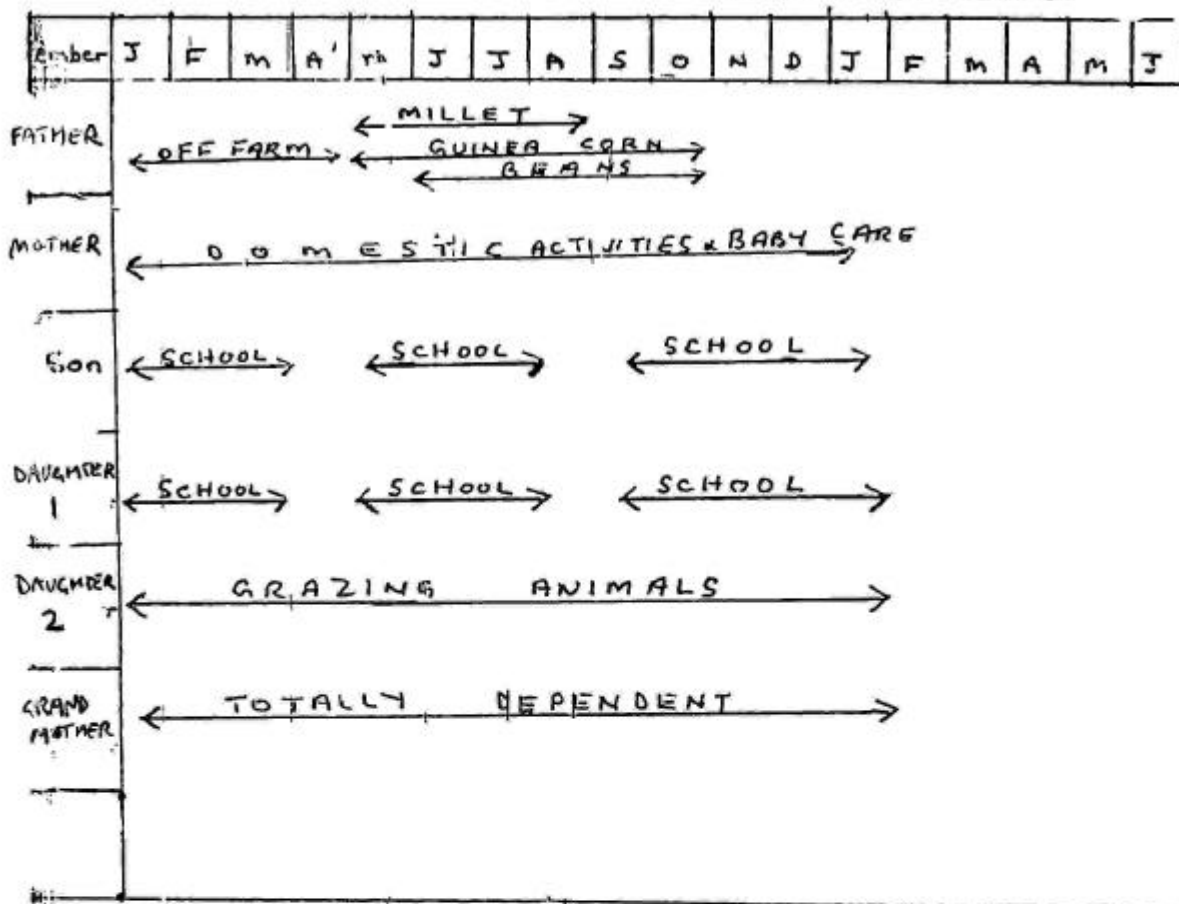 ember J F M A M J J A S O N D J F M A M J
FATHER
MILLET
OFF FARM GUINEA CORN
BEANS
MOTHER DOMESTIC ACTIVITIES & BABY CARE
Son SCHOOL SCHOOL SCHOOL
DAUGHTER
1
SCHOOL SCHOOL SCHOOL
DAUGHTER
2
GRAZING ANIMALS
GRAND
MOTHER
TOTALLY DEPENDENT